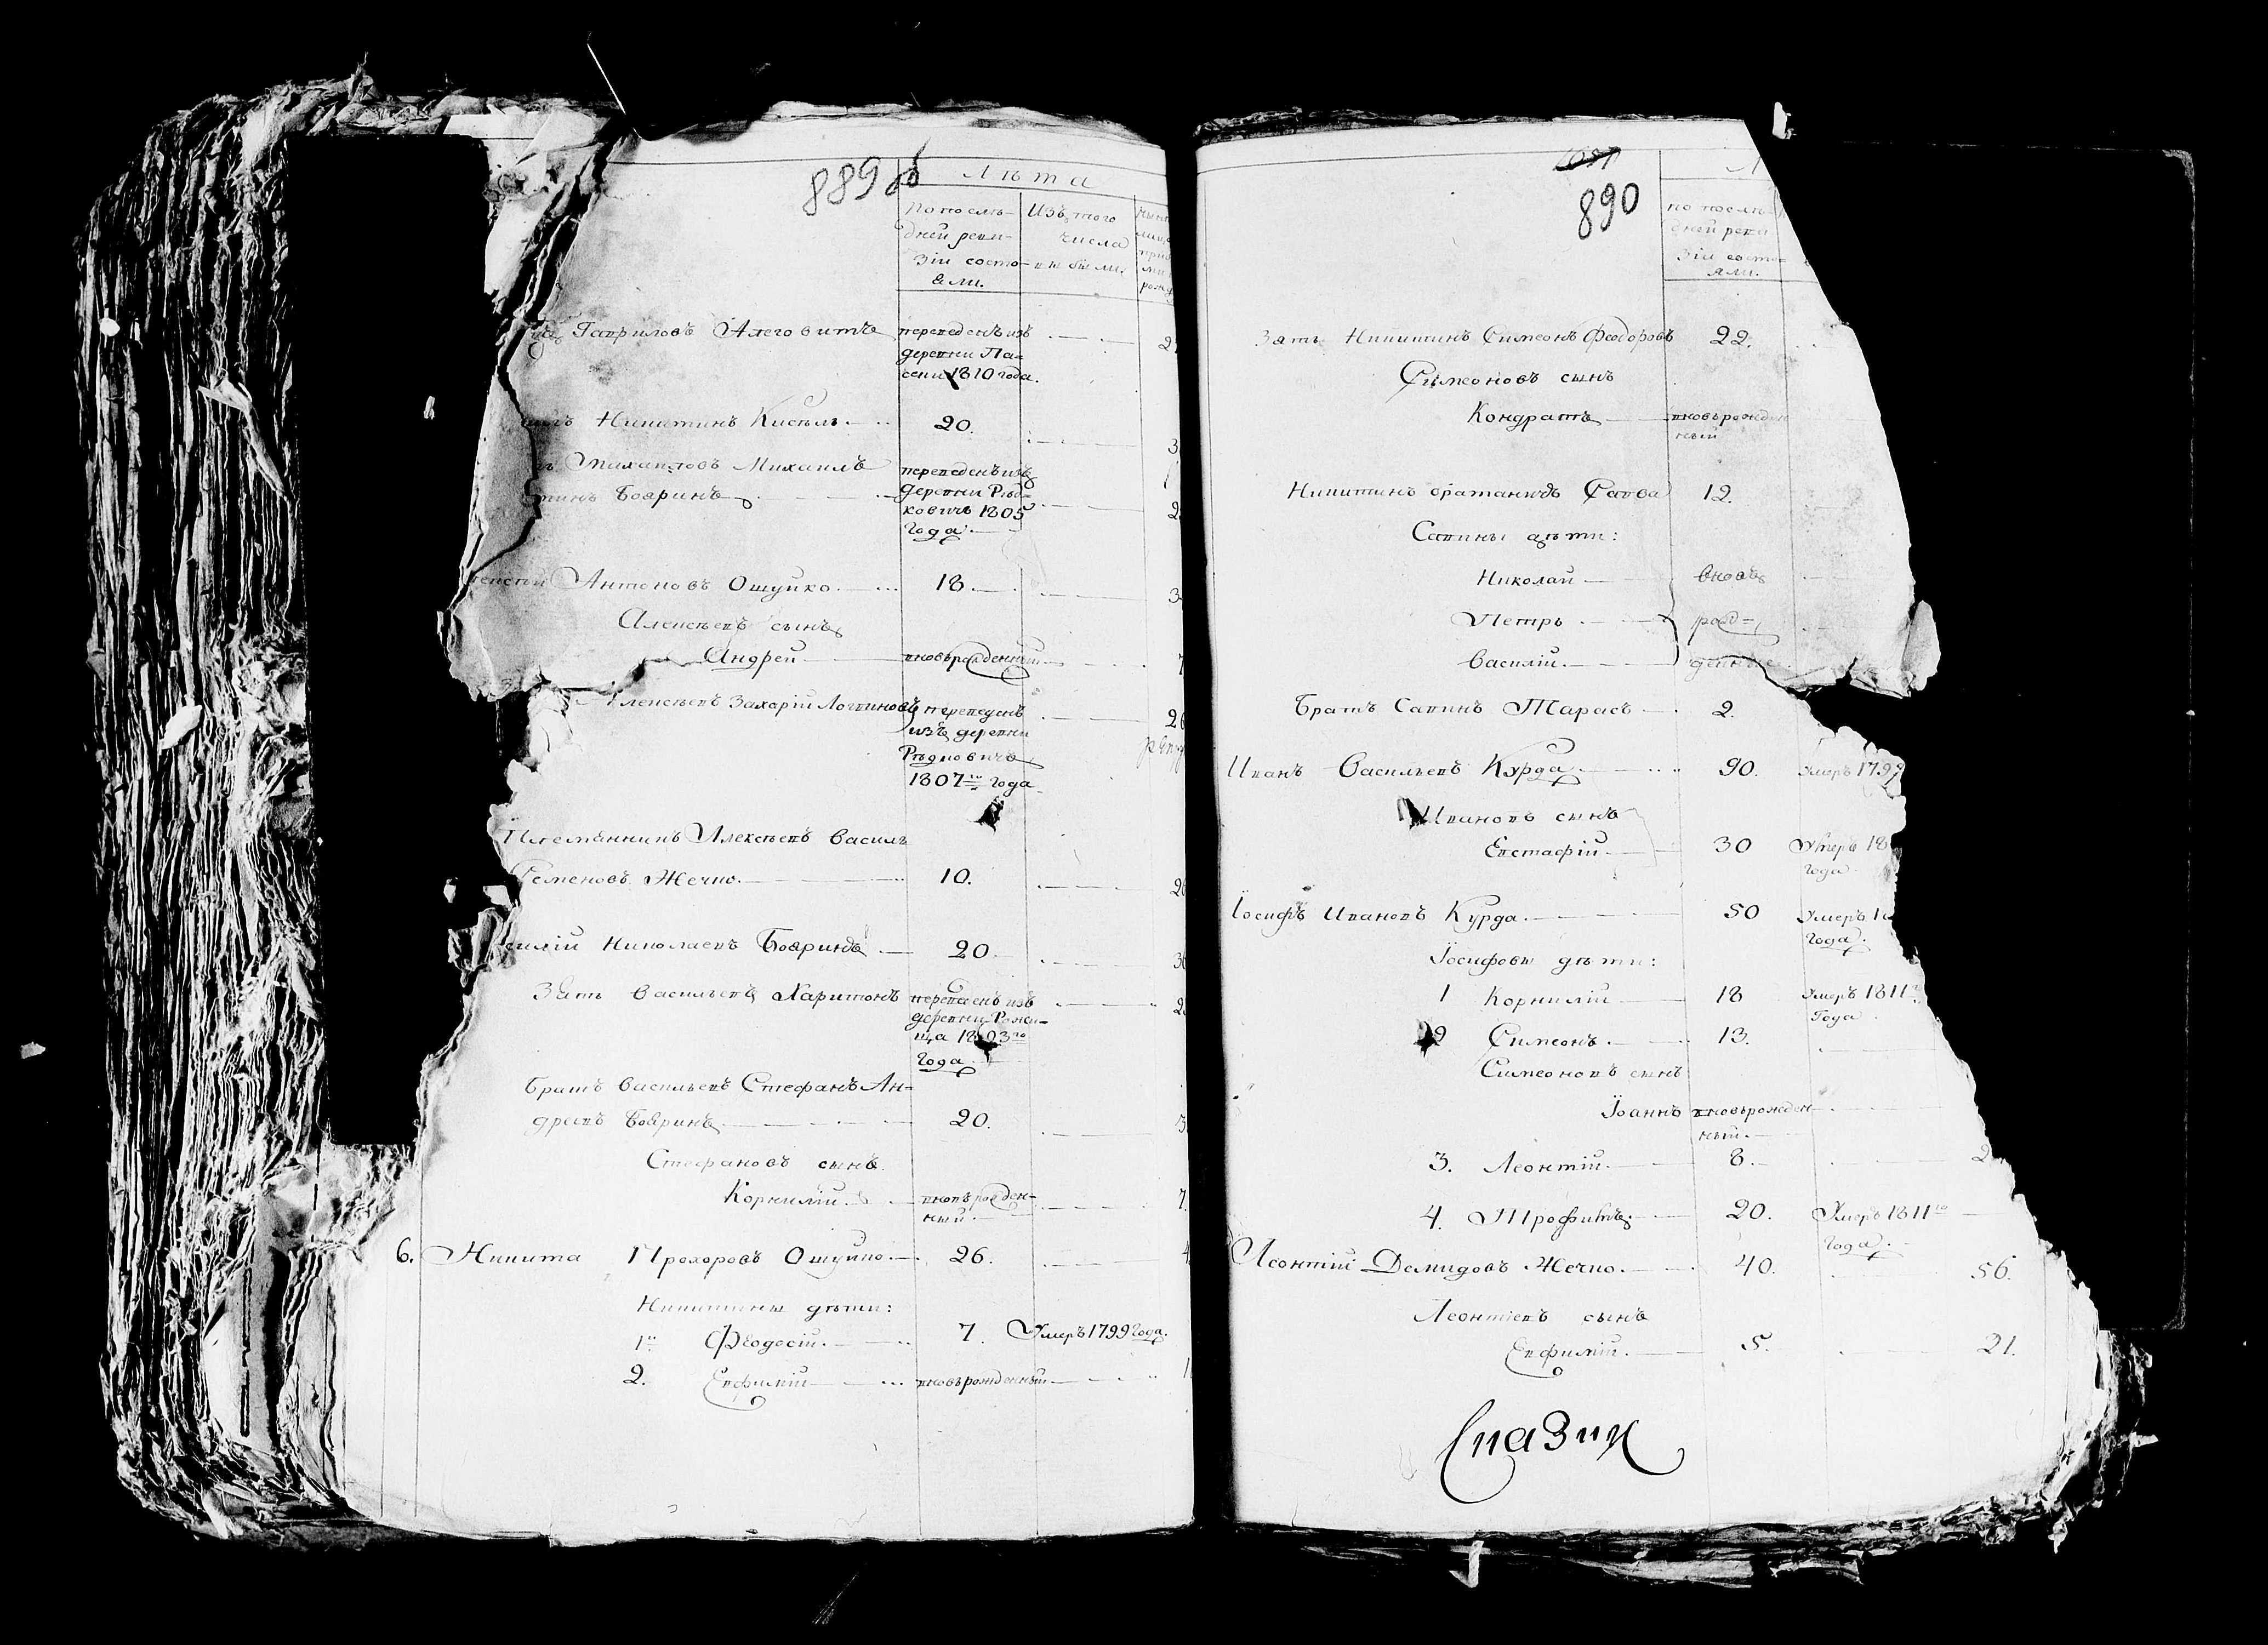 889 об
Лѣта
По послѣ- Изъ того
дней реви- числа
зіи состо- выбыли.
яли.
Гавриловъ Алеговитъ переведенъ изъ
деревни Па-
сени 1810 года.
Никитинъ Кисѣль. 20. 3
Михаиловъ Михаилъ переведенъ изъ
Бояринъ деревни Рѣд-
ковичь 1805
года
Антоновъ Ошуйко. 18. 3
Алексѣевъ сынъ
Андрей вновьрожденный 7
Алексѣевъ Захарій Логвиновъ переведенъ
изъ деревни
Рѣдковичь
1807го года
Племянникъ Алексѣевъ Василь
Семеновъ Жечко. 10.
Николаевъ Бояринъ 20. 30
Зять Васильевъ Харитонъ переведенъ изъ
деревни Рожи-
ща 1803го
года
Братъ Васильевъ Стефанъ Ан-
дреевъ Бояринъ 20. 3
Стефановъ сынъ
Корнилій вновьрожден- 7.
ный.
6. Никита Прохоровъ Ошуйко. 26. 4
Никитины дѣти:
1й Феодосій. 7. Умеръ 1799 года.
2. Евфимій вновьрожденный 1
890
Л
по послѣ-
дней реви
зіи состо-
яли.
Зять Никитинъ Симеонъ Феодоровъ 22.
Симеоновъ сынъ
Кондратъ вновьрожден
ный
Никитинъ братаничь Савва 12.
Савины дѣти:
Николай вновь
Петръ рож=
Василій. денные
Братъ Савинъ Тарасъ 2.
Иванъ Васильевъ Курда. 90. Умеръ 1799
Ивановъ сынъ
Евстафій. 30 Умеръ 18
года
Іосифъ Ивановъ Курда. 50 Умеръ 1
года.
Іосифовы дѣти:
1 Корнилій 18 Умеръ 1811
года
2 Симеонъ. 13.
Симеоновъ сынъ
Іоаннъ вновьрожден
ный.
3. Леонтій. 8. 2
4. Трофимъ. 20. Умеръ 1811го
года.
Леонтій Демидовъ Жечко. 40. 56.
Леонтіевъ сынъ
Евфимій. 5. 21.